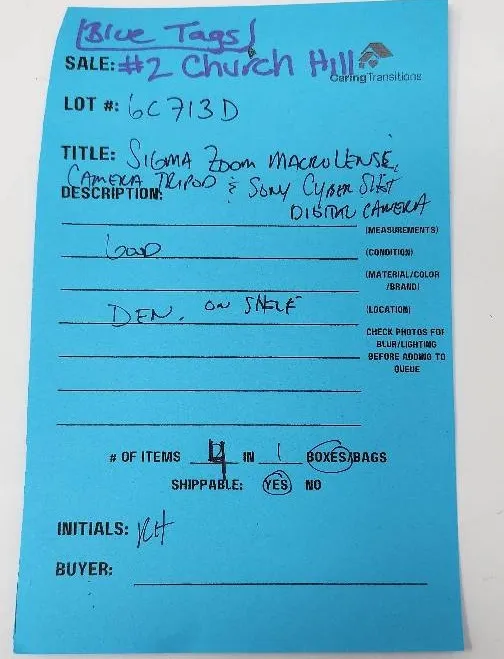 [Blue Tags]
SALE: #2 Church Hill
Caring Transitions
LOT #: 6C713D
TITLE: SIGMA ZOOM MACRO LENSE,
CAMERA TRIPOD & SONY CYBER SHOT
DESCRIPTION:
DIGITAL CAMERA
(MEASUREMENTS)
GOOD
(CONDITION)
(MATERIAL/COLOR
/BRAND)
DEN, ON SHELF
(LOCATION)
CHECK PHOTOS FOR
BLUR/LIGHTING
BEFORE ADDING TO
QUEUE
# OF ITEMS 4 IN 1 BOXES/BAGS
SHIPPABLE: YES NO
INITIALS: RH
BUYER: